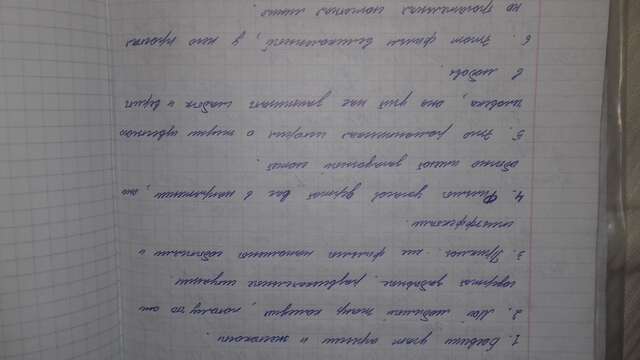 1. Боевики учат агрессии и жестокости.
2. Мой любимый жанр комедия, потому что они
содержат забавные, развлекательные ситуации.
3. Приключ-ие фильмы наполнены событиями и
спецэффектами.
4. Фильмы ужасов держат вас в напряжении, они
обычно имеют загадочный сюжет.
5. Это романтическая история о жизни известного
человека, она учит нас защищать слабых и верить
в любовь.
6. Этот фильм великолепный, у него простая
но трогательная сюжетная линия.